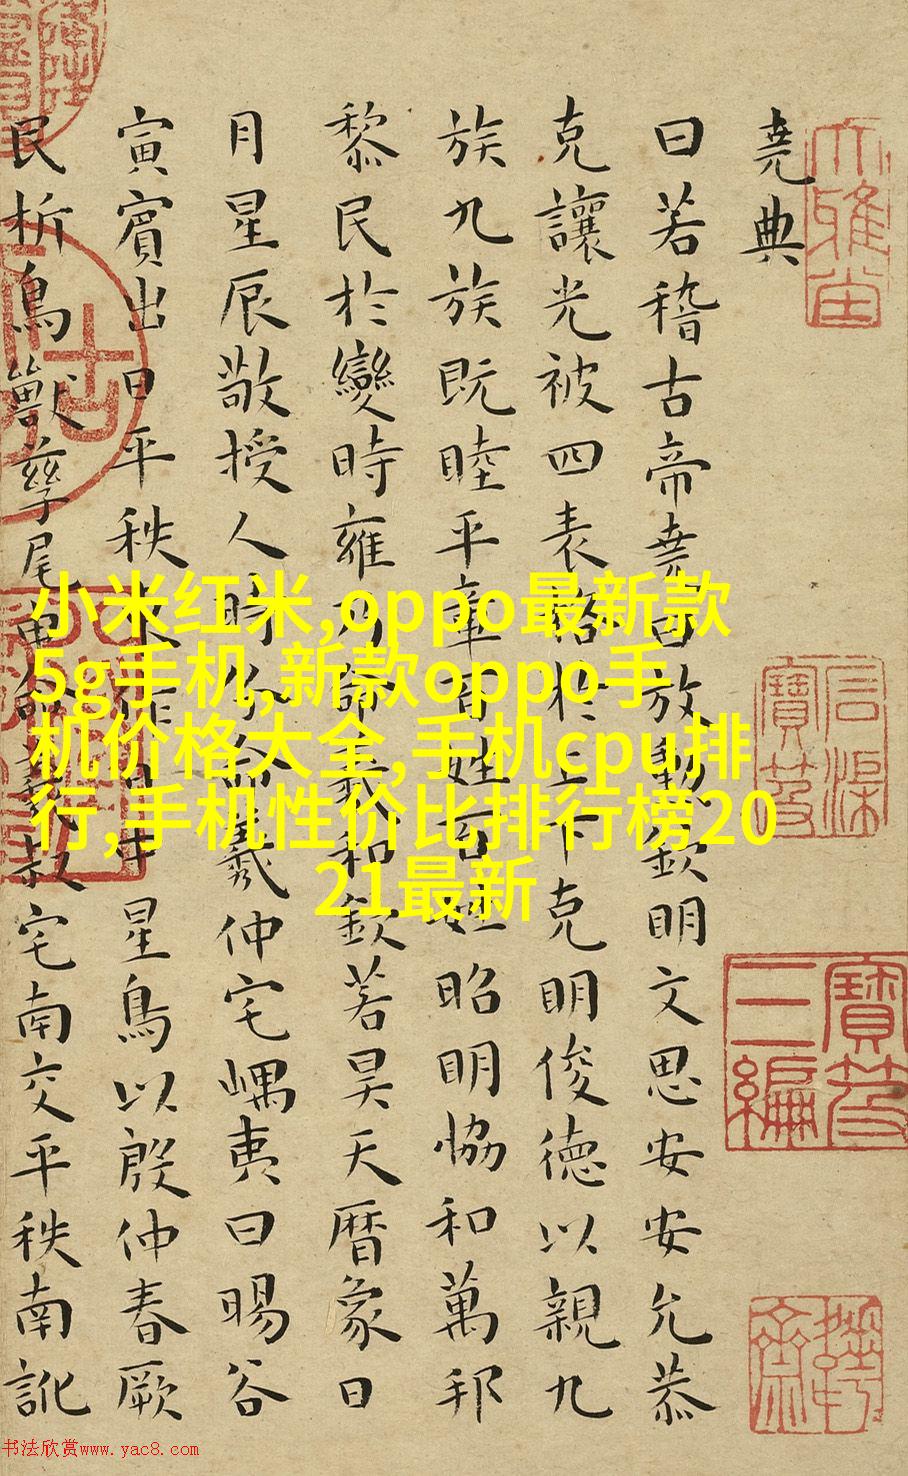 堯典
曰若稽古帝堯曰放勳欽明文思安安允恭
克讓光被四表格於上下克明俊德以親九
族九族既睦平章百姓百姓昭明恊和萬邦
黎民於變時雍乃命羲和欽若昊天曆象日
月星辰敬授人時分命羲仲宅嵎夷曰暘谷
寅賓出日平秩東作日中星鳥以殷仲春厥
民析鳥獸孳尾申命羲叔宅南交平秩南訛
小米红米,oppo最新款
5g手机,新款oppo手
机价格大全,手机cpu排
行,手机性价比排行榜20
21最新
寶笈
三編
书法欣赏www.yac8.com